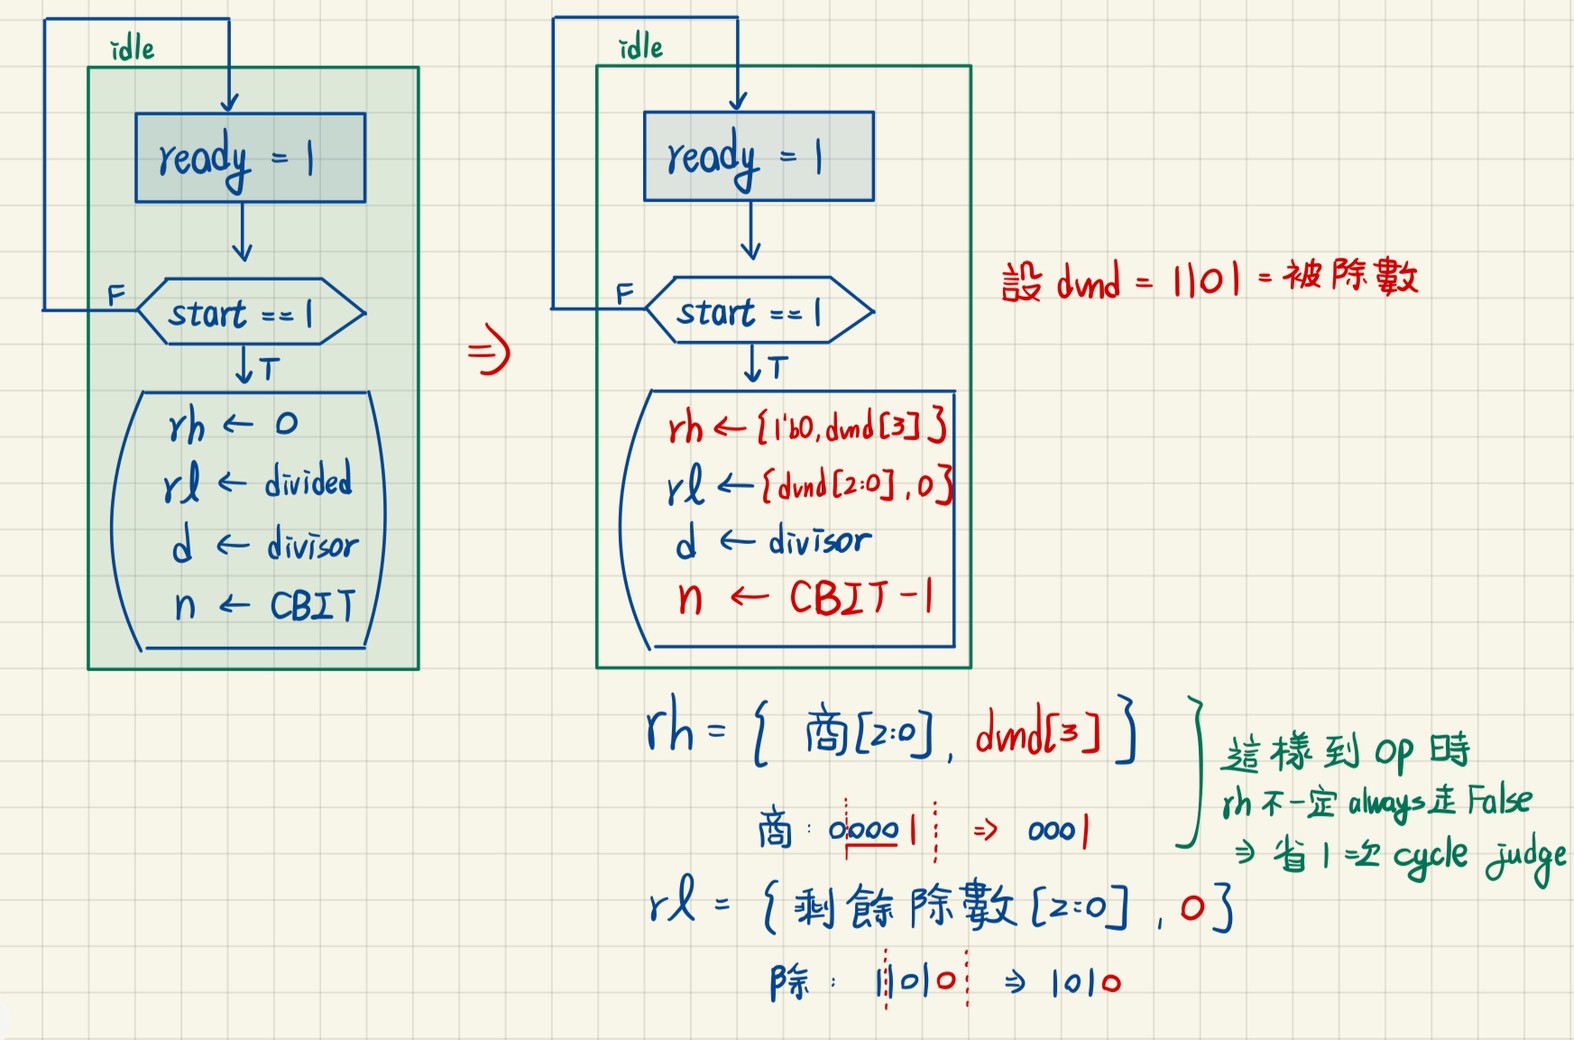 idle
ready = 1
F
start == 1
T
rh ← 0
rl ← divided
d ← divisor
n ← CBIT
⇒
idle
ready = 1
F
start == 1
T
rh ← {1'b0, dvnd[3]}
rl ← {dvnd[2:0], 0}
d ← divisor
n ← CBIT-1
設 dvnd = 1101 = 被除數
rh = { 商[2:0], dvnd[3] }
商 : 00001 ⇒ 0001
rl = { 剩餘除數[2:0], 0 }
除 : 11010 ⇒ 1010
這樣到 op 時
rh 不一定 always 走 False
⇒ 省 1 次 cycle judge